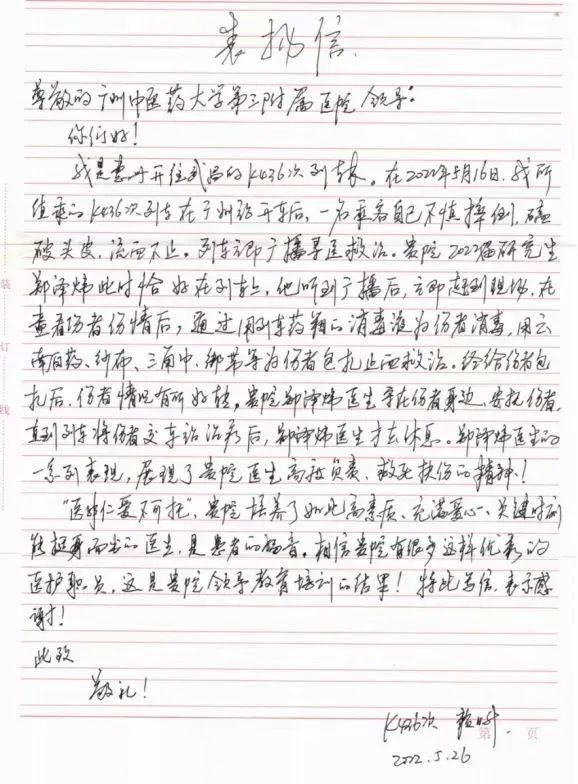 表扬信
尊敬的广州中医药大学第三附属医院领导:
你们好!
我是惠州开往武昌的K436次列车长。在2022年5月16日,我所
值乘的K436次列车在广州站开车后,一名乘客自己不慎摔倒,磕
破头皮,流血不止。列车立即广播寻医救治。贵院2022届研究生
郑泽炜此时恰好在列车上,他听到广播后,立即赶到现场,在
查看伤者伤情后,通过用列车药箱的消毒液为伤者消毒,用云
南白药、纱布、三角巾、绑带等为伤者包扎止血救治。经给伤者包
扎后,伤者情况有所好转。贵院郑泽炜医生守在伤者身边、安抚伤者,
直到列车将伤者交车站治疗后,郑泽炜医生才去休息。郑泽炜医生的
一系列表现,展现了贵院医生高被负责、救死扶伤的精神!
"医神仁爱不可托",贵院培养了如此高素质、充满爱心、关键时刻
能挺身而出的医生,是患者的福音。相信贵院有很多这样优秀的
医护职员,这是贵院领导教育培训的结果!特此写信,表示感
谢!
此致
敬礼!
K436次
第 页
2022.5.26
装
订
线